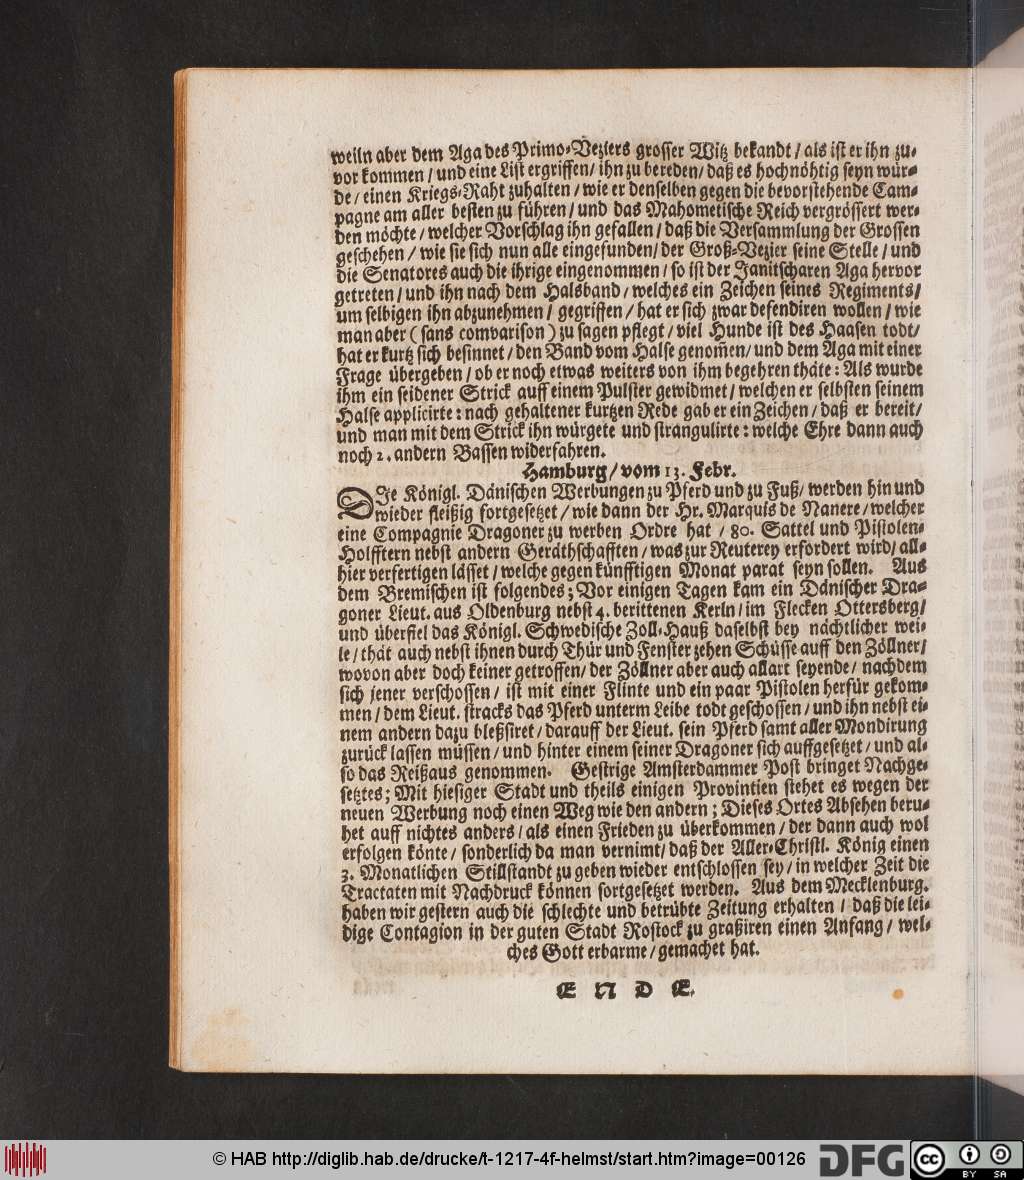 weiln aber dem Aga des Primo-Veziers grosser Witz bekandt / als ist er ihn zu-
vor kommen / und eine List ergriffen / ihn zu bereden / daß es hochnöhtig seyn wür-
de / einen Kriegs-Raht zuhalten / wie er denselben gegen die bevorstehende Cam-
pagne am aller besten zu führen / und das Mahometische Reich vergrössert wer-
den möchte / welcher Vorschlag ihn gefallen / daß die Versammlung der Grossen
geschehen / wie sie sich nun alle eingefunden / der Groß-Vezier seine Stelle / und
die Senatores auch die ihrige eingenommen / so ist der Janitscharen Aga hervor
getreten / und ihn nach dem Halsband / welches ein Zeichen seines Regiments /
um selbigen ihn abzunehmen / gegriffen / hat er sich zwar defendiren wollen / wie
man aber ( sans comparison ) zu sagen pflegt / viel Hunde ist des Haasen todt /
hat er kurtz sich besinnet / den Band vom Halse genom̃en / und dem Aga mit einer
Frage übergeben / ob er noch etwas weiters von ihm begehren thäte : Als wurde
ihm ein seidener Strick auff einem Pulster gewidmet / welchen er selbsten seinem
Halse applicirte : nach gehaltener kurtzen Rede gab er ein Zeichen / daß er bereit /
und man mit dem Strick ihn würgete und strangulirte : welche Ehre dann auch
noch 2. andern Bassen widerfahren.
Hamburg / vom 13. Febr.
DIe Königl. Dänischen Werbungen zu Pferd und zu Fuß / werden hin und
wieder fleißig fortgesetzet / wie dann der Hr. Marquis de Nanere / welcher
eine Compagnie Dragoner zu werben Ordre hat / 80. Sattel und Pistolen-
Holfftern nebst andern Geräthschafften / was zur Reuterey erfordert wird / all-
hier verfertigen lässet / welche gegen künfftigen Monat parat seyn sollen. Aus
dem Bremischen ist folgendes ; Vor einigen Tagen kam ein Dänischer Dra-
goner Lieut. aus Oldenburg nebst 4. berittenen Kerln / im Flecken Ottersberg /
und überfiel das Königl. Schwedische Zoll-Hauß daselbst bey nächtlicher wei-
le / thät auch nebst ihnen durch Thür und Fenster zehen Schüsse auff den Zöllner /
wovon aber doch keiner getroffen / der Zöllner aber auch allart seyende / nachdem
sich jener verschossen / ist mit einer Flinte und ein paar Pistolen herfür gekom-
men / dem Lieut. stracks das Pferd unterm Leibe todt geschossen / und ihn nebst ei-
nem andern dazu bleßsiret / darauff der Lieut. sein Pferd samt aller Mondirung
zurück lassen müssen / und hinter einem seiner Dragoner sich auffgesetzet / und al-
so das Reißaus genommen. Gestrige Amsterdammer Post bringet Nachge-
setztes ; Mit hiesiger Stadt und theils einigen Provintien stehet es wegen der
neuen Werbung noch einen Weg wie den andern ; Dieses Ortes Absehen beru-
het auff nichtes anders / als einen Frieden zu überkommen / der dann auch wol
erfolgen könte / sonderlich da man vernimt / daß der Aller-Christl. König einen
3. Monatlichen Stillstandt zu geben wieder entschlossen sey / in welcher Zeit die
Tractaten mit Nachdruck können fortgesetzet werden. Aus dem Mecklenburg.
haben wir gestern auch die schlechte und betrübte Zeitung erhalten / daß die lei-
dige Contagion in der guten Stadt Rostock zu graßiren einen Anfang / wel-
ches Gott erbarme / gemachet hat.
E N D E.
© HAB http://diglib.hab.de/drucke/t-1217-4f-helmst/start.htm?image=00126
DFG
cc
BY SA